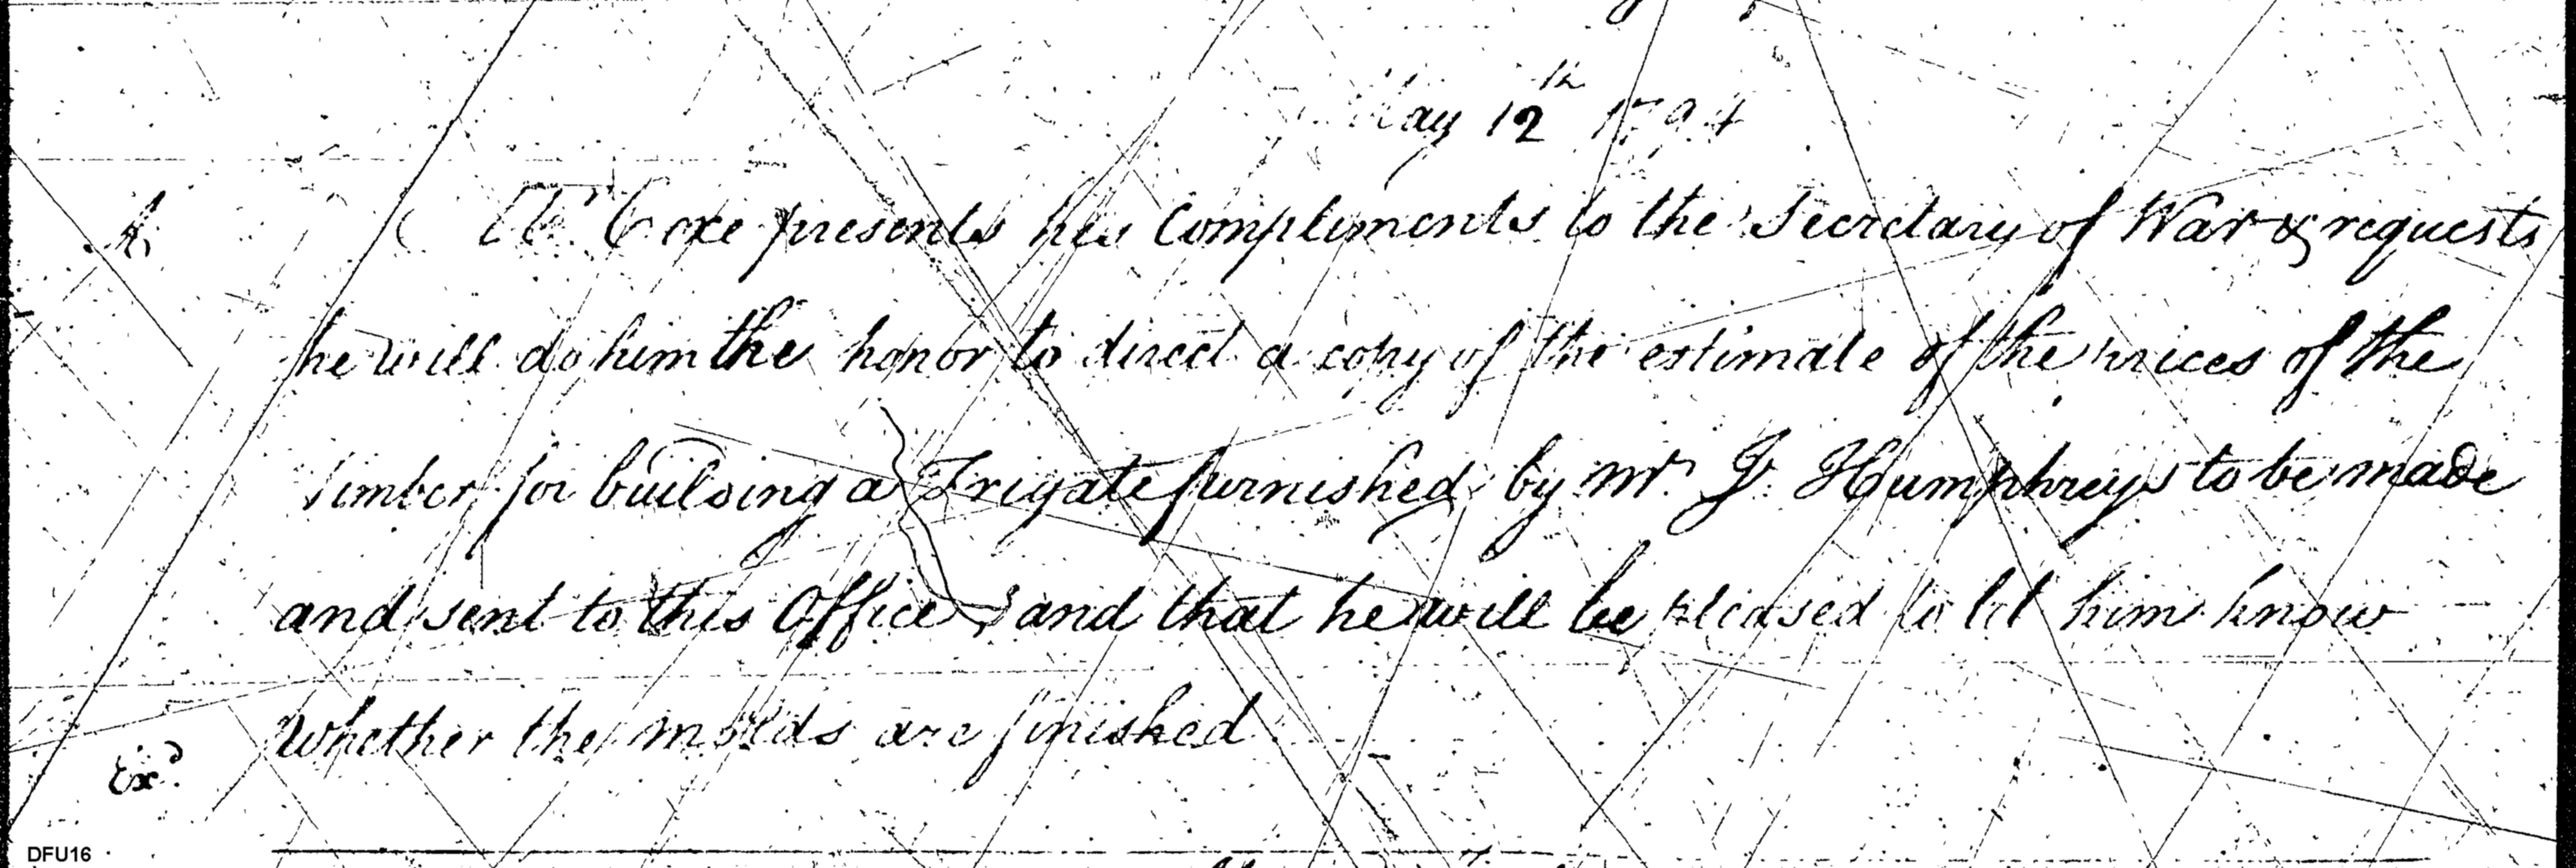 May 12th 1794
Mr Coxe presents his Compliments to the Secretary of War & requests
he will do him the honor to direct a copy of the estimate of the prices of the
timber for building a Frigate furnished by Mr. J. Humphreys to be made
and sent to this Office, and that he will be pleased to let him know
whether the molds are finished
Exd
DFU16